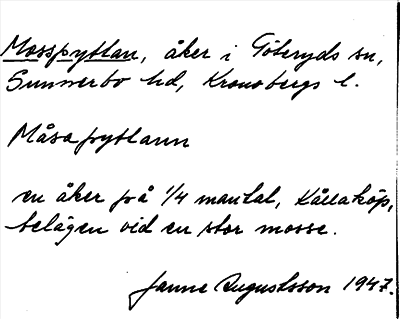 Mosspyttan, åker i Göteryds sn,
Sunnerbo hd, Kronobergs l.
Måsapyttann
en åker på 1/4 mantal, Kållaköp,
belägen vid en stor mosse.
Janne Augustsson 1947.